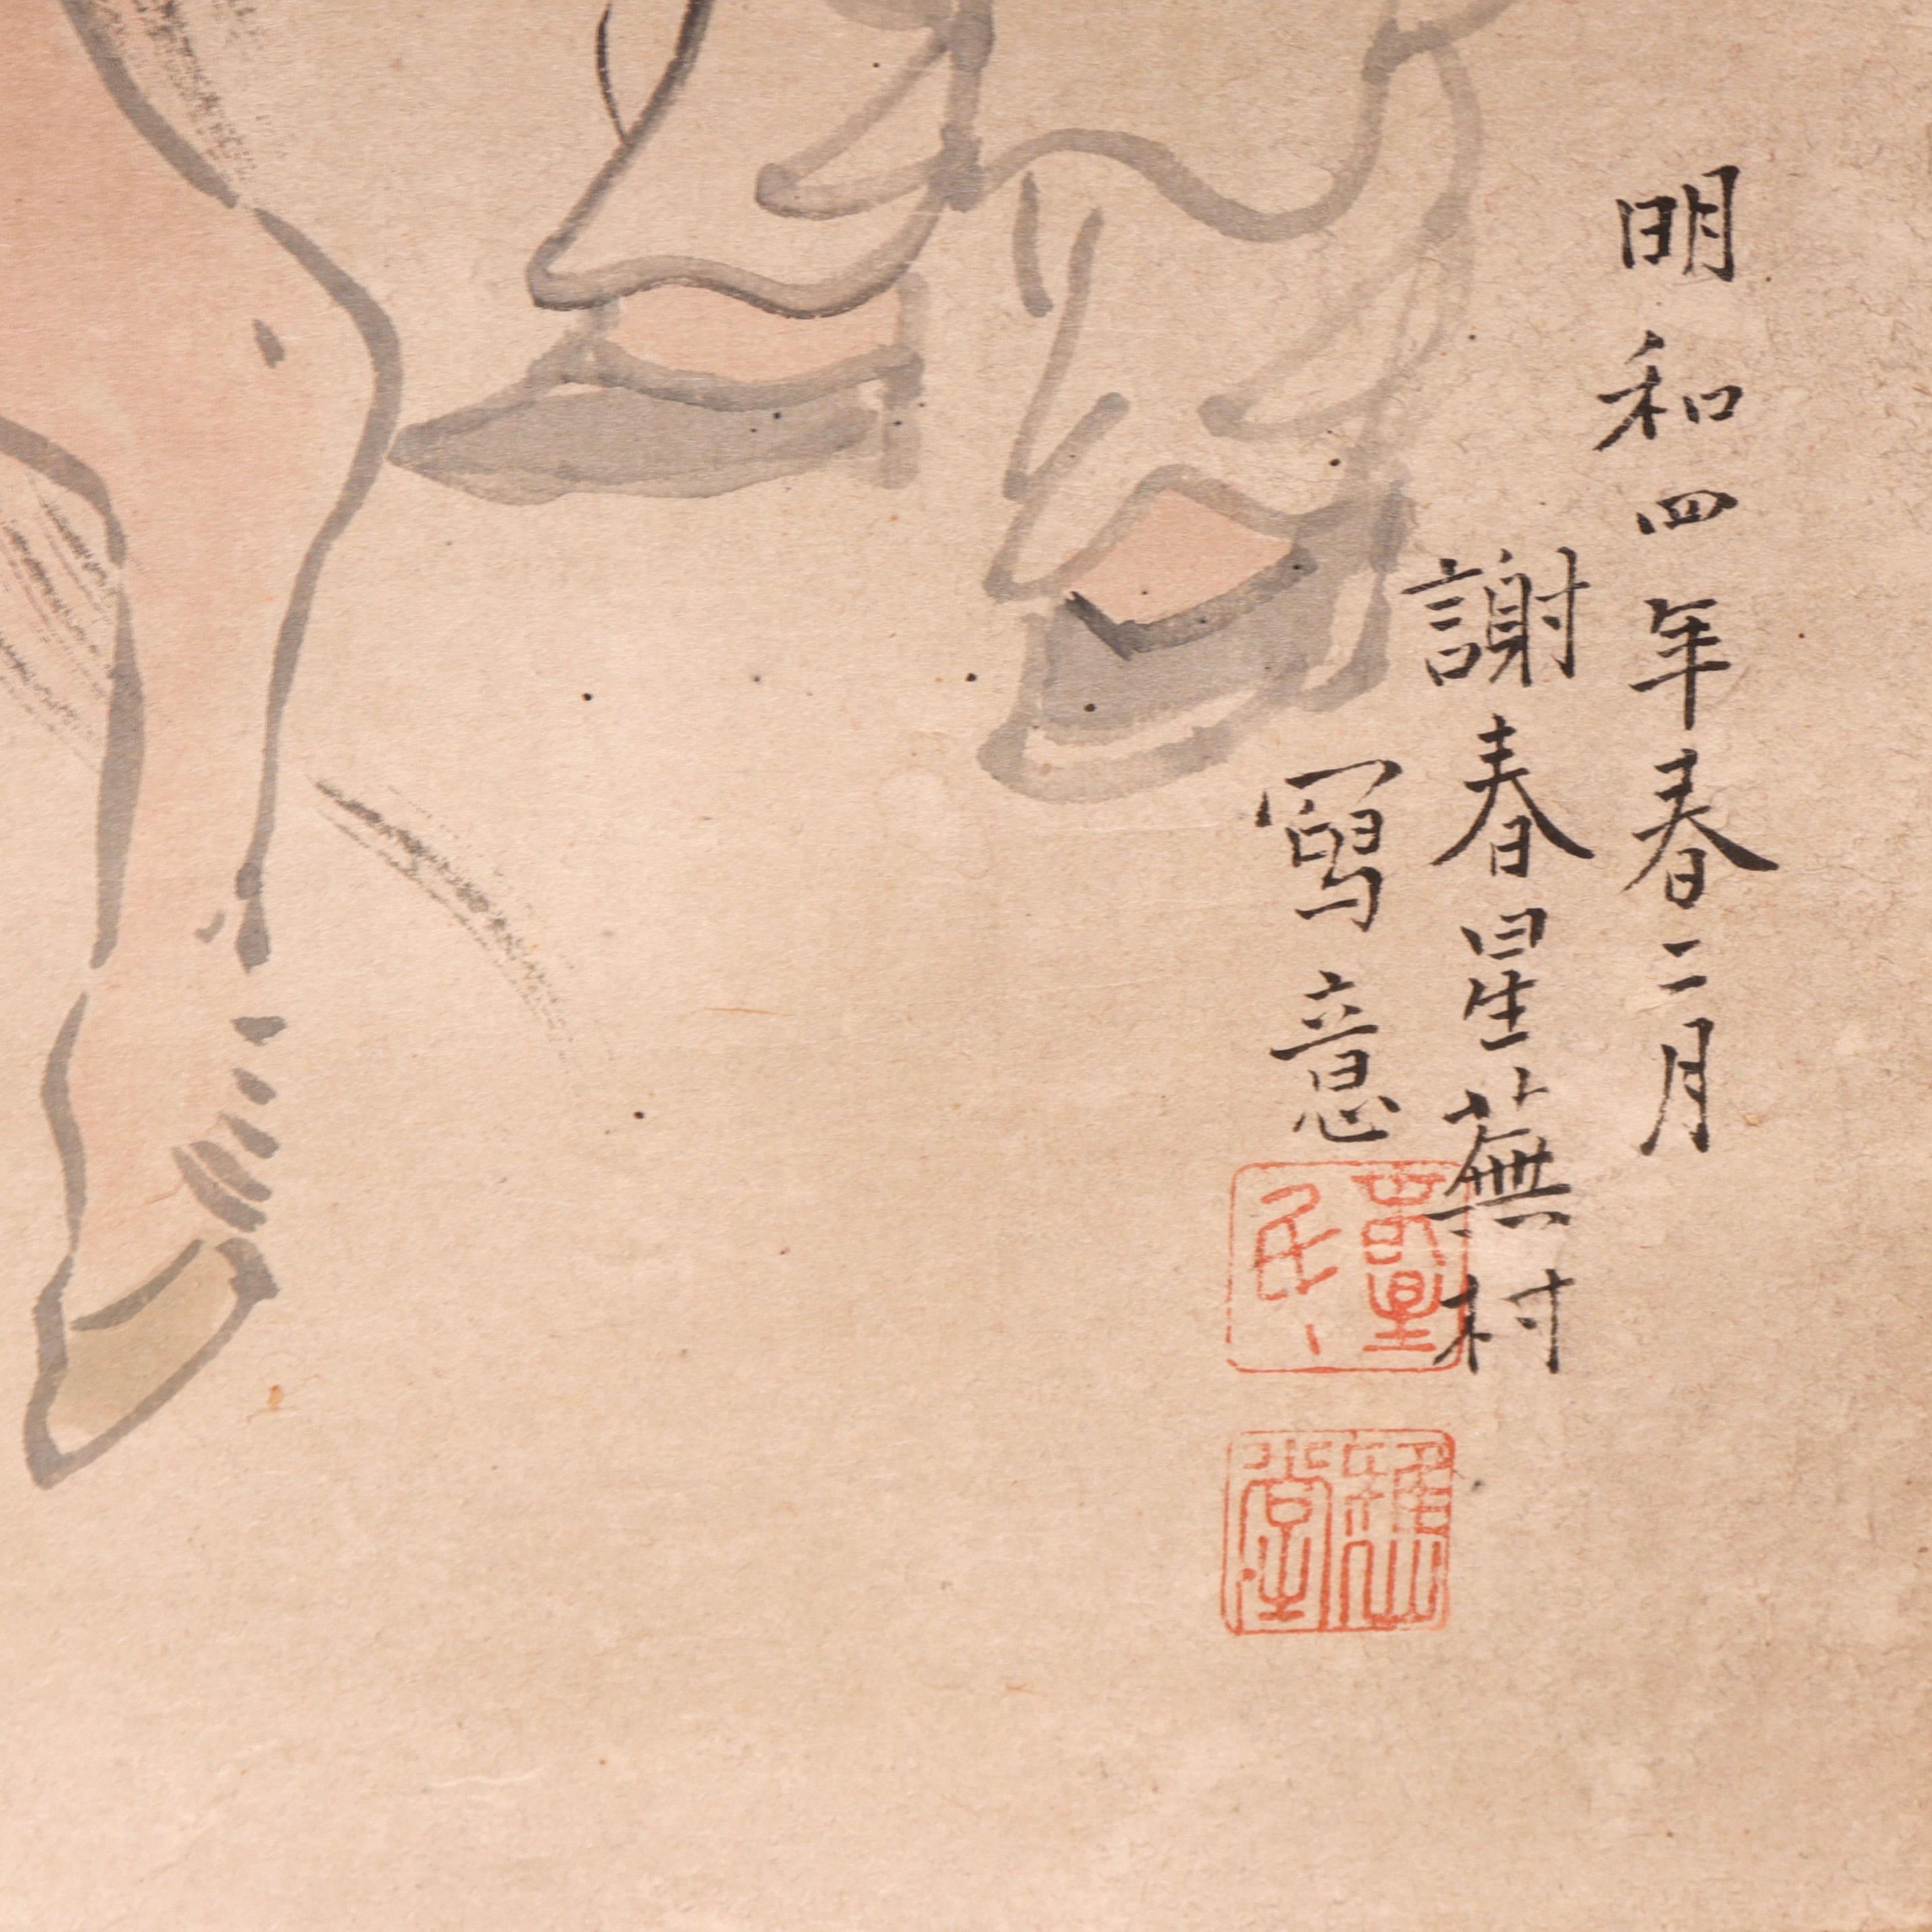 明和四年春二月
謝春星蕪村
寫意